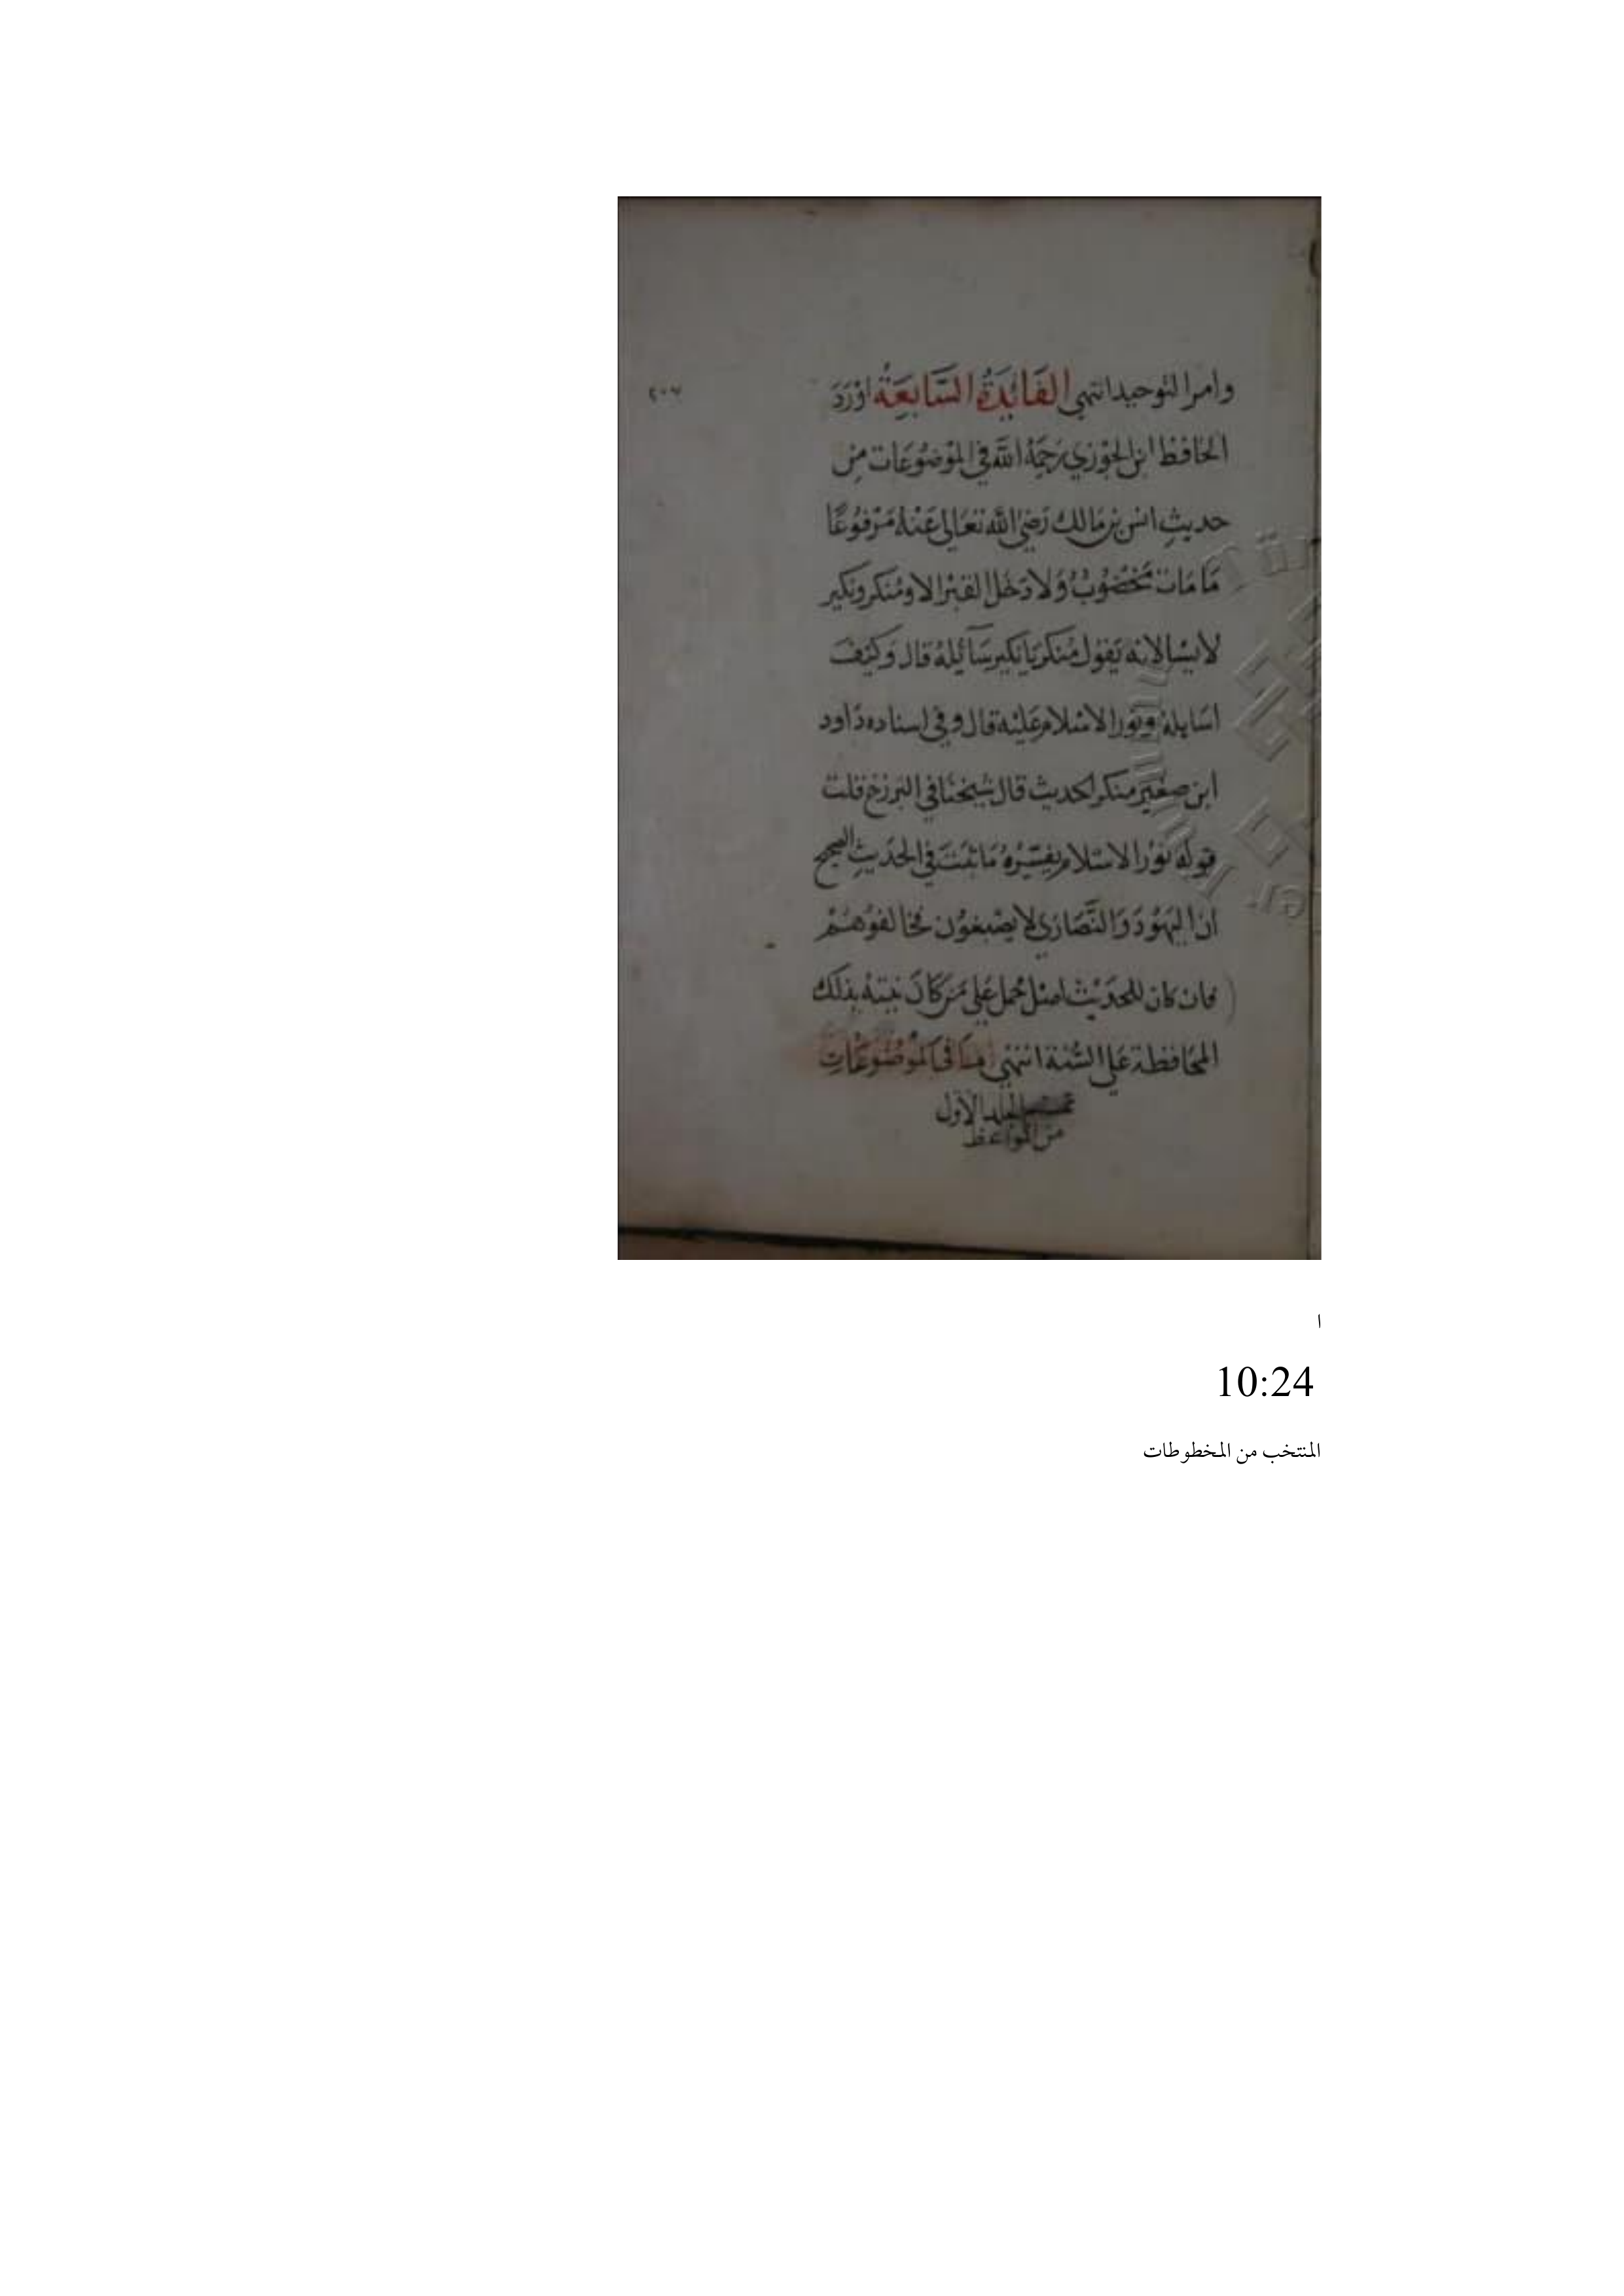 وامر التوحيد انتهى الفَائِدَةُ السَّابِعَةُ اوْرَدَ
٢٠٧
الحَافظ ابن الجَوْزي رَحِمَهُ الله في الموْضُوعَات مِن
حديثِ انس بن مَالك رَضِيَ الله تعَالى عَنْهُ مَرْفوُعًا
مَا مَات مَخْضُوبٌ وَلا دَخَل القبْر الا ومُنكر ونكير
لا يسْالانه يَقول مُنكر يَا نكير سَآئِلهُ قال وَكيْفَ
اسَايلهُ ونور الاسْلام عَليْه قال وفي اسناده دَاود
ابن صغِير منكر الحديث قال شيخنَا في البَرزخ قلت
قولهُ نوْر الاسْلام يفسّرهُ مَا ثبَتَ في الحَديثِ الصحيح
انّ اليَهُودَ وَالنَّصَارَي لا يصْبغوُن فخالفوُهُمْ
فان كان للحَديْث اصْل حُمل عَلي مَن كانَ نيتهُ بذلك
المحَافظة عَلي السُّنة انتهى مَا في الموْضُوعَاتِ
تم الجلد الاول
من المواعظ
ا
10:24
المنتخب من المخطوطات